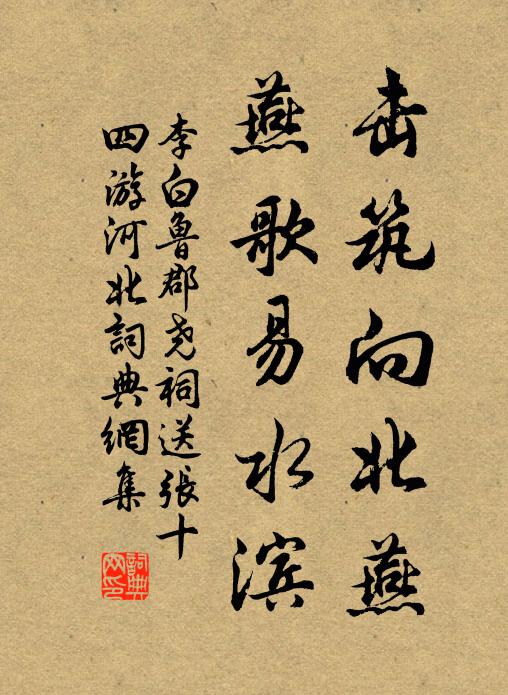 击筑向北燕
燕歌易水滨
李白鲁郡尧祠送張十
四游河北詞典網集
詞典
网印